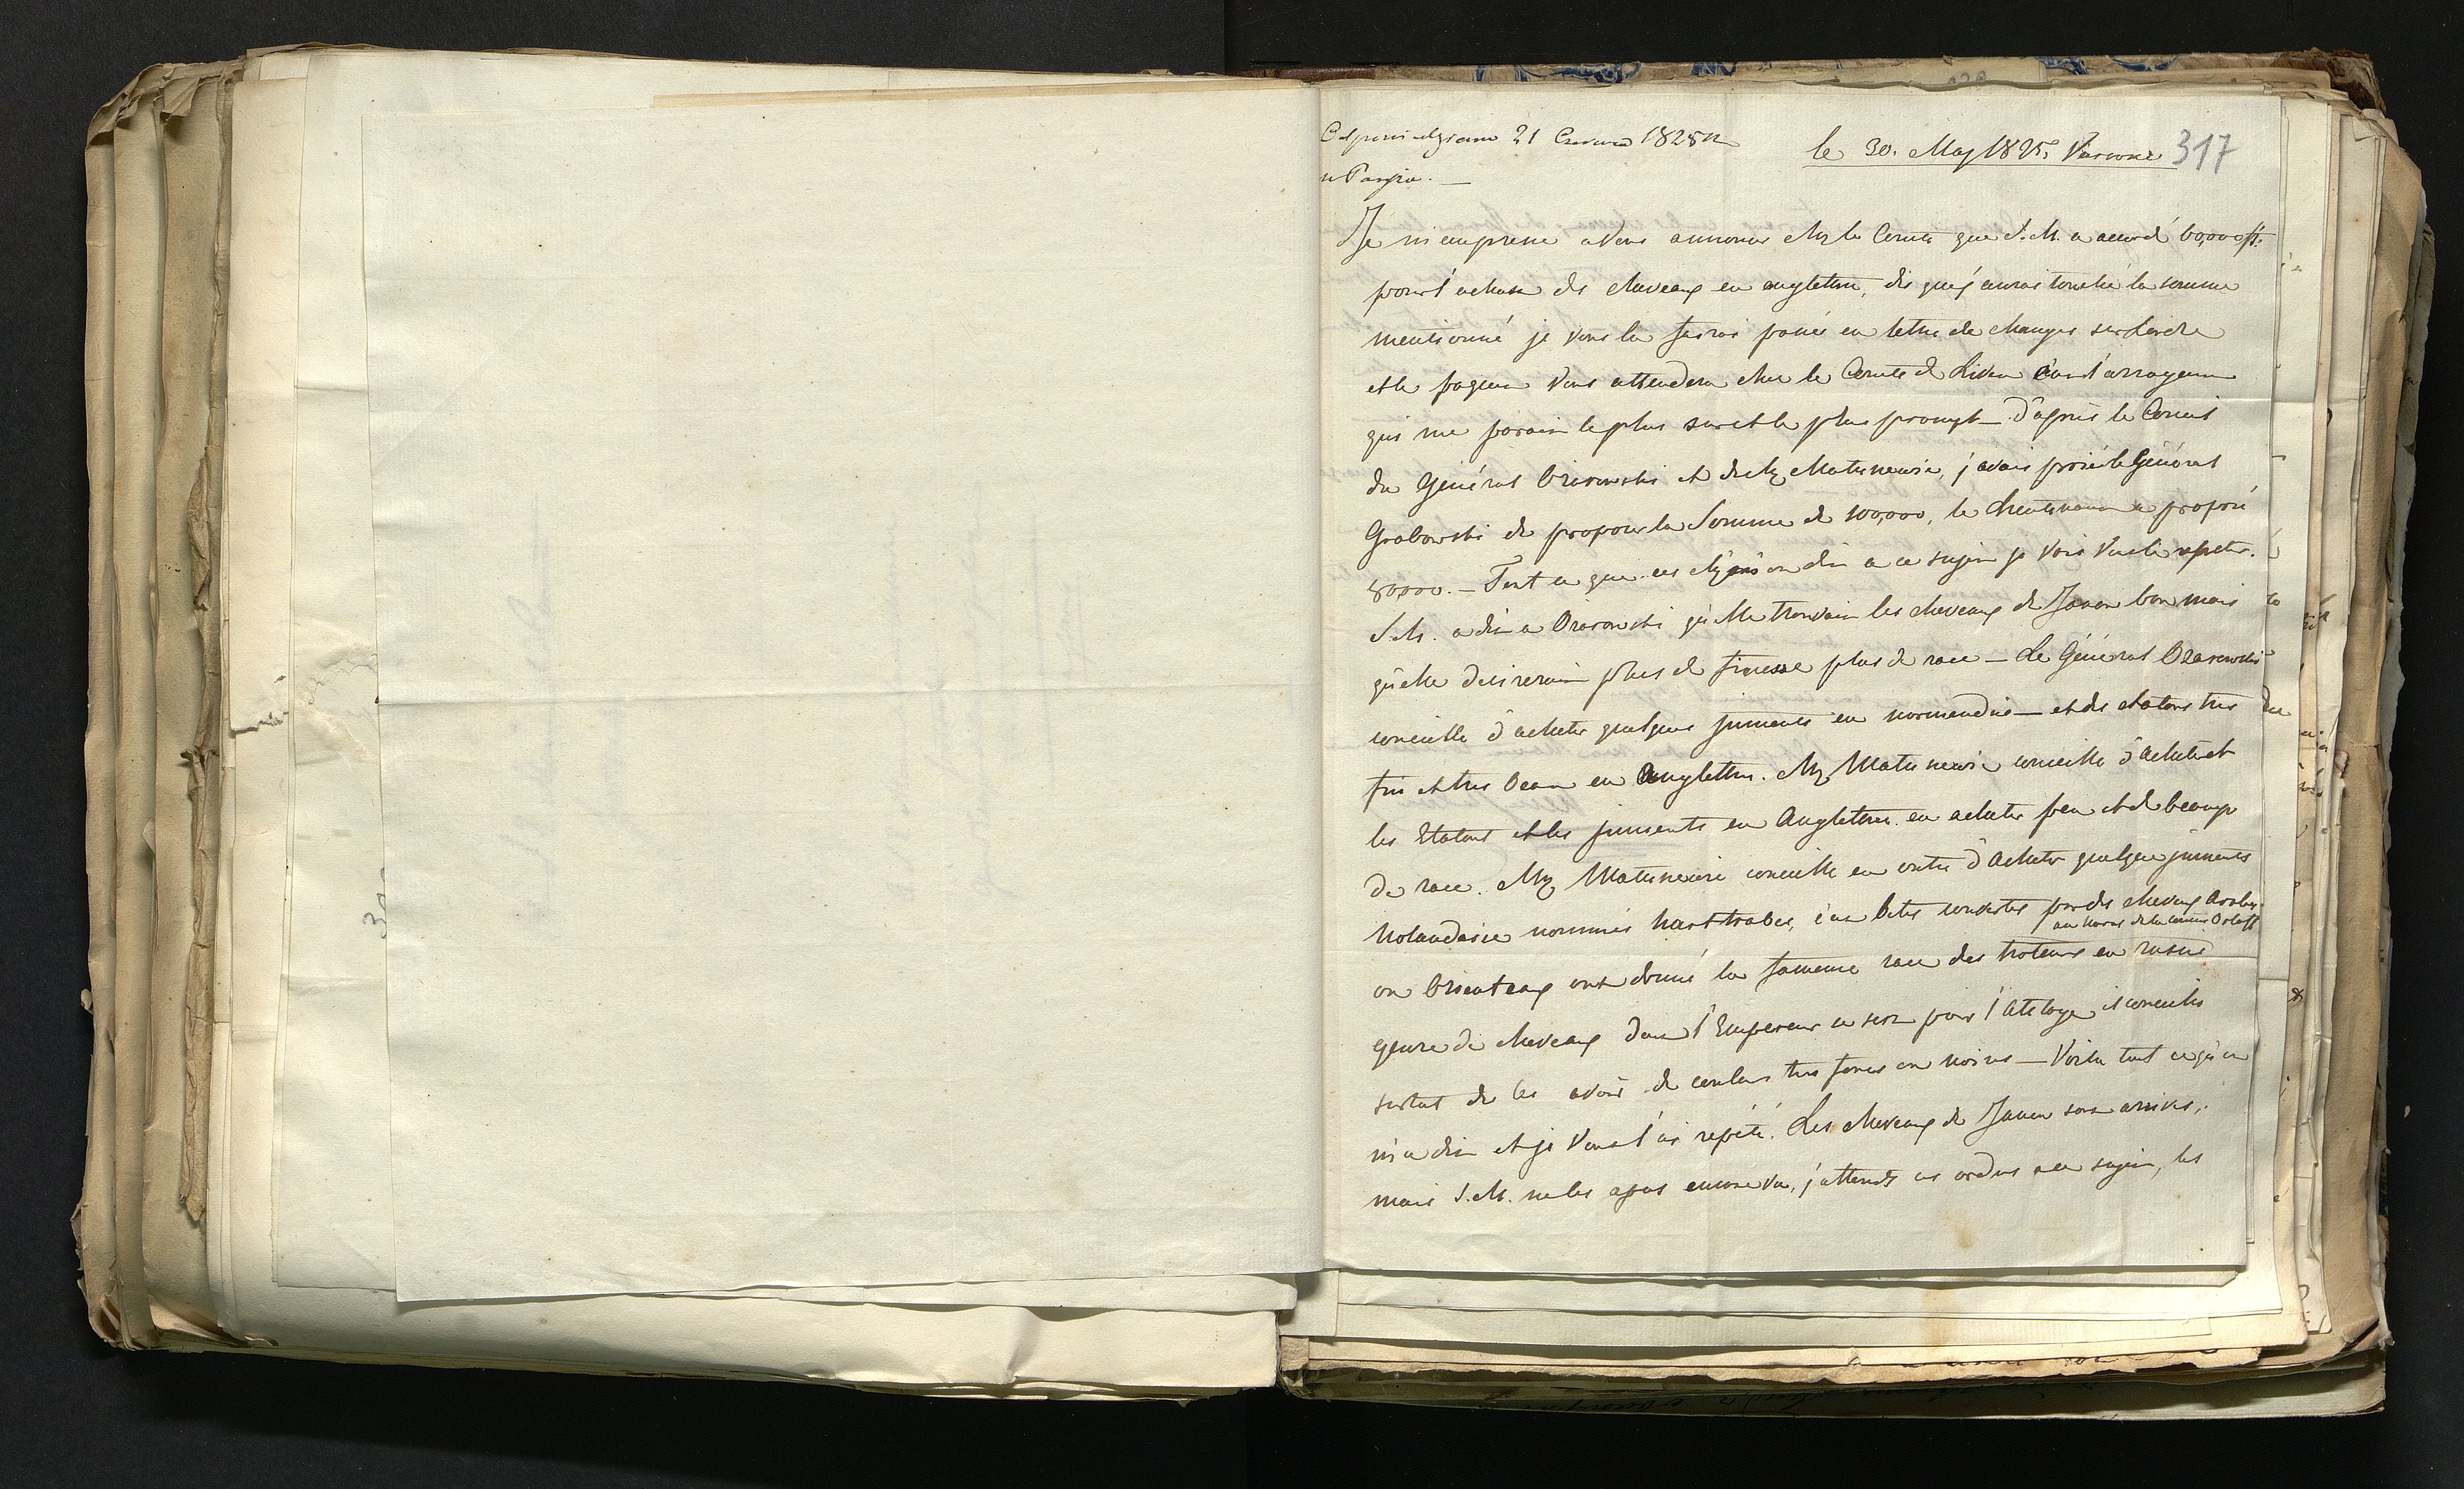 Odpowiedziano 21 Czerwca 1825 r.
w Paryżu. —
le 30. May 1825. Varsovie 317
Je m'empresse a Vous annoncer Mr le Comte que S. M. a accordé 60,000 fl.
pour l'achase de cheveaux en angleterre, dès que j'aurai touché la somme
mentionné je Vous la ferai passer en lettre de changes sur Londre
et le paquet Vous attendera chez le Comte de Liven c'est l'arrangement
qui me parait le plus sur et le plus prompt — d'après le Conseil
du Général Ozarowski et de Mr Matusnewic, j'avais prié le Général
Grabowski de proposer la Somme de 100,000, le Lieutenant a proposé
80000. — Tout ce que ces Mrs ont dit a ce sujet je vais Vous le repeter.
S. M. a dit a Ozarowski qu'elle trouvait les cheveaux de Janow bon mais
qu'elle desirerait plus de finesse plus de race — Le Général Ozarowski
conceille d'acheter quelques juments en normendie — et des etalons tres
fin et tres beau en Angletterre. Mr Matusnewic conceille d'acheter et
les Etalons et les juments en Angleterre en acheter peu et de beaucoup
de race. Mr Matusnewic conceille en outre d'acheter quelque juments
holandaise nommés hartrabes, ces betes couvertes par des cheveaux Arabes
au haras de la Comtesse Orloff
ou Orienteaux ont donné la fameuse race des troteurs en russie
genre de cheveaux dont l'Empereur se sert pour l'Atelage il conceille
surtout de les avoir de couleur tres foncé ou noires — Voila tout ce qu'on
m'a dit et je Vous l'ai repété. Les cheveaux de Janow sont arrivés,
mais S. M. ne les a pas encore vu, j'attends ces ordres a ce sujet, les